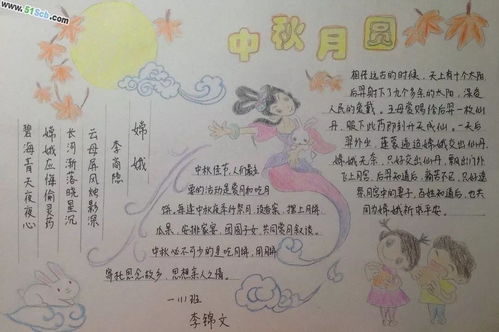 www.51Scb.com
中秋月圆
嫦娥
李商隐
云母屏风烛影深
长河渐落晓星沉
嫦娥应悔偷灵药
碧海青天夜夜心
中秋佳节,人们最主
要的活动是赏月和吃月
饼,每逢中秋夜举行祭月,设香案,摆上月饼
瓜果,安排家宴,团圆子女,共同赏月叙谈。
中秋必不可少的是吃月饼,用月饼
寄托思念故乡,思想亲人之情。
一、(1)班
李锦文
相传远古的时候,天上有十个太阳,
后羿射下了九个多余的太阳,深受
人民的爱戴,王母赏赐给后羿一枚仙
丹,服下此药即刻升天成仙,一天后
羿外出,蓬蒙逼迫嫦娥交出仙丹,
嫦娥无奈,只好吞出仙丹,飘出窗外
飞上月宫,后羿知道后,痛苦不已,只好遥
祭月宫中的妻子,百姓知道后,也共
同为嫦娥祈求平安。